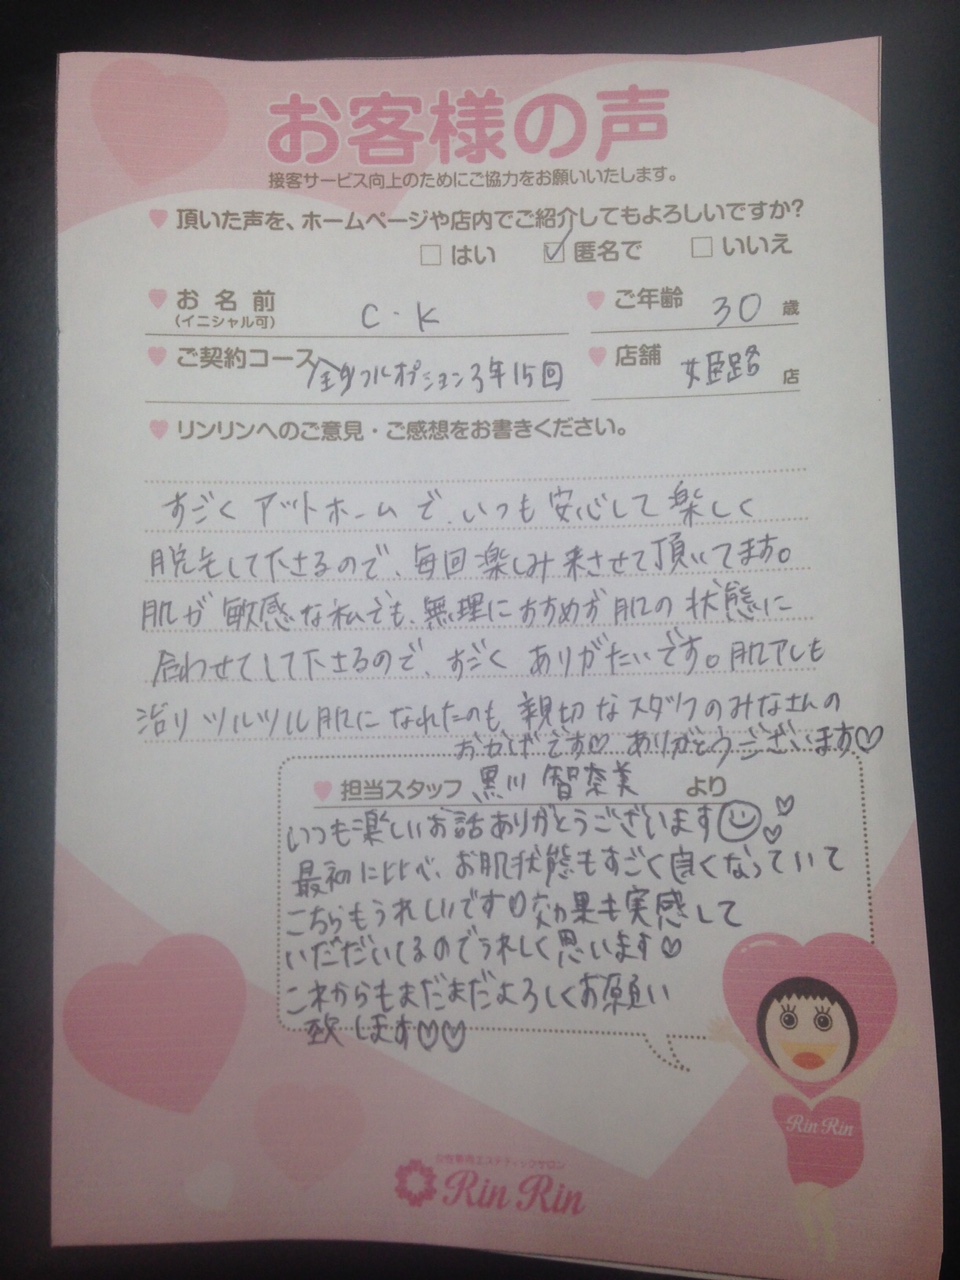 お客様の声
接客サービス向上のためにご協力をお願いいたします。
頂いた声を、ホームページや店内でご紹介してもよろしいですか?
□ はい ☑ 匿名で □ いいえ
お名前 C・K ご年齢 30 歳
(イニシャル可)
ご契約コース 全身フルオプション3年15回 店舗 姫路 店
リンリンへのご意見・ご感想をお書きください。
すごくアットホームで、いつも安心して楽しく
脱毛して下さるので、毎回楽しみ来させて頂いてます。
肌が敏感な私でも、無理におすすめず肌の状態に
合わせてして下さるので、すごくありがたいです。肌アレも
治りツルツル肌になれたのも、親切なスタッフのみなさんの
おかげです♡ ありがとうございます♡
担当スタッフ 黒川 智奈美 より
いつも楽しいお話ありがとうございます
最初に比べ、お肌状態もすごく良くなっていて
こちらもうれしいです♡効果も実感して
いただいてるのでうれしく思います♡
これからもまだまだよろしくお願い
致します♡♡
Rin Rin
女性専用エステティックサロン
Rin Rin